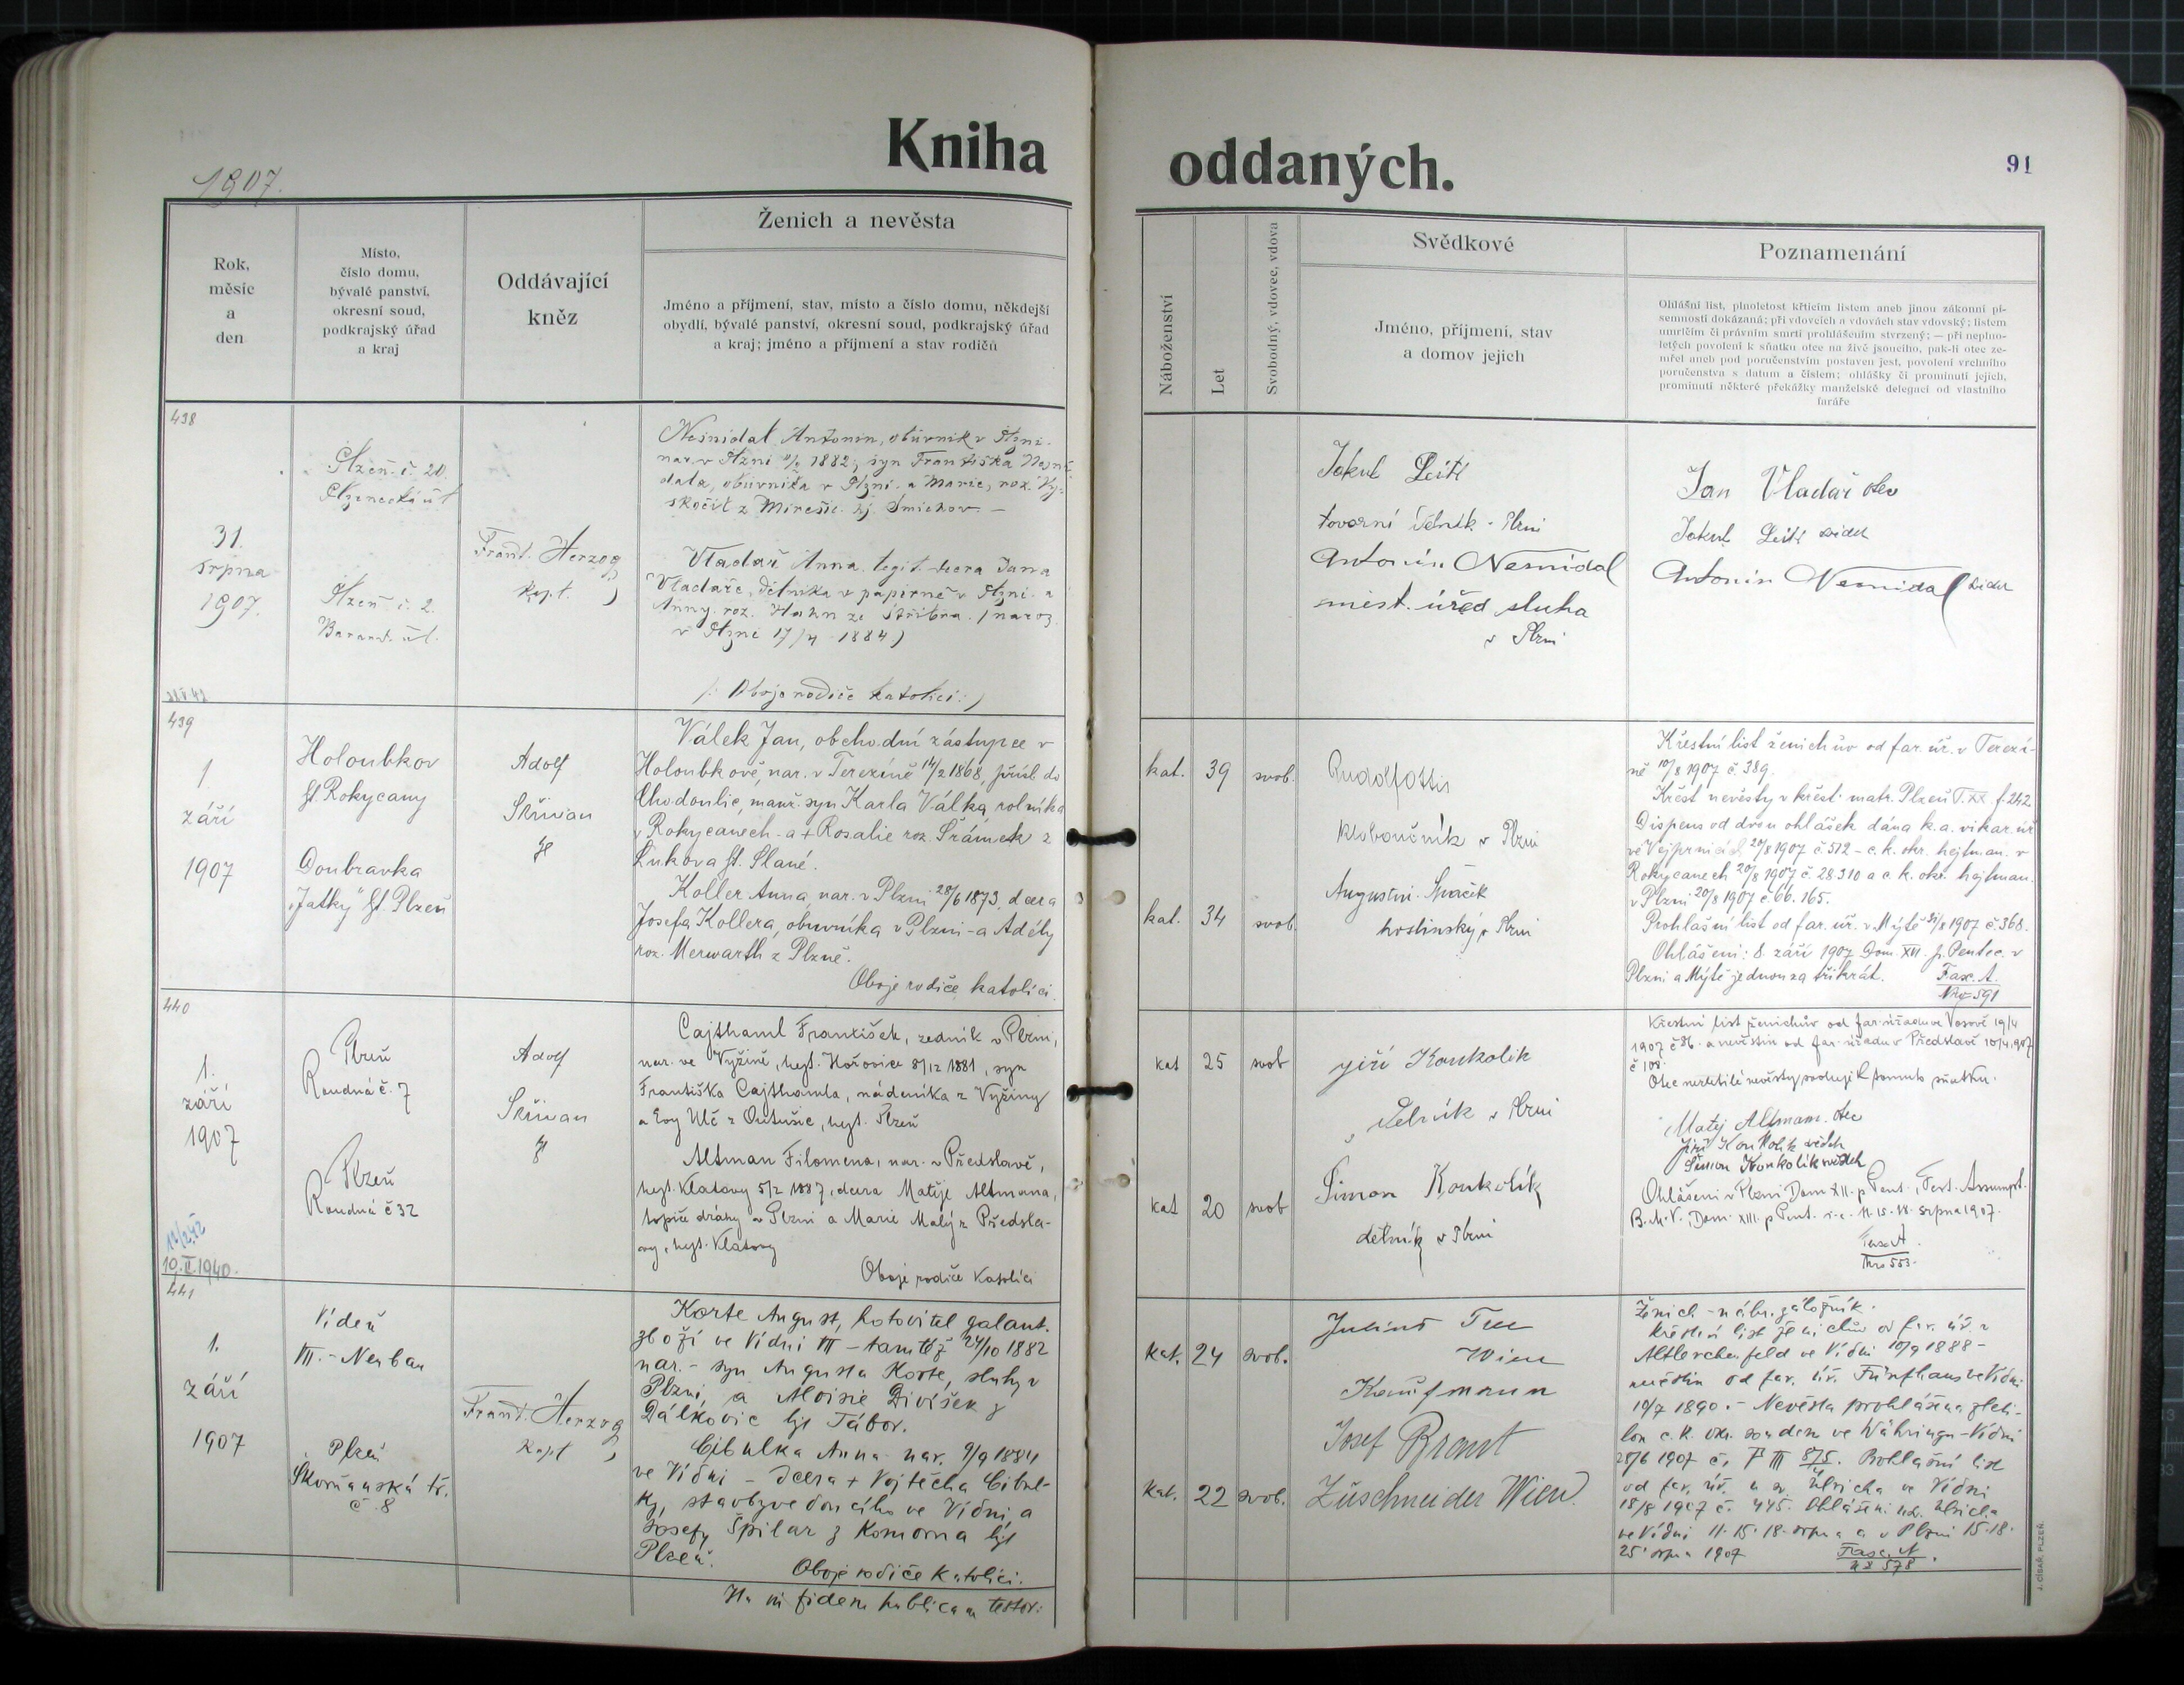 1907.
Kniha
oddaných.
91
Rok,
měsíc
a
den
Místo,
číslo domu,
bývalé panství,
okresní soud,
podkrajský úřad
a kraj
Oddávající
kněz
Ženich a nevěsta
Jméno a příjmení, stav, místo a číslo domu, někdejší
obydlí, bývalé panství, okresní soud, podkrajský úřad
a kraj; jméno a příjmení a stav rodičů
Náboženství
Let
Svobodný, vdovec, vdova
Svědkové
Jméno, příjmení, stav
a domov jejich
Poznamenání
Ohlášní list, plnoletost křticím listem aneb jinou zákonní pí-
semností dokázaná; při vdovcích a vdovách stav vdovský; listem
umrlčím či právním smrti prohlášením stvrzený; — při neplno-
letých povolení k sňatku otce na živě jsoucího, pak-li otec ze-
mřel aneb pod poručenstvím postaven jest, povolení vrchního
poručenstva s datum a číslem; ohlášky či prominutí jejich,
prominutí některé překážky manželské delegací od vlastního
faráře
438
31.
srpna
1907.
Plzeň č. 20.
Plzenecká ul
Plzeň č. 2.
Frant. Herzog
kapt.
Nesnídal Antonín, obuvník v Plzni.
nar. v Plzni 1882, syn Františka Nesní-
dala, obuvníka v Plzni a Marie, roz. Vy-
skočil z Mirešic hj. Smíchov. —
Vladař Anna, legit. dcera Jana
Vladaře, dělníka v papírně v Plzni a
Anny roz. Hahn ze Stříbra. (naroz.
v Plzni 17/4 1884)
(: Oboje rodiče katolíci :)
Jakub
tovární dělník - Plzni
Antonín Nesnidal
měst. úřed sluha
v Plzni
Jan Vladař otec
Jakub svědek
Antonín Nesnidal svědek
439
1
září
1907
Holoubkov
hjt. Rokycany
Doubravka
„Jatky" hjt. Plzeň
Adolf
Skřivan
Válek Jan, obchodní zástupce v
Holoubkově, nar. v Terezíně 14/2 1868, přísl. do
Chodoulic, manž. syn Karla Válka, rolníka
v Rokycanech - a + Rosalie roz. Šrámek z
Lukova hjt. Slané.
Koller Anna nar. v Plzni 28/6 1873, dcera
Josefa Kollera, obuvníka v Plzni - a Adély
roz. Merwarth z Plzně.
Oboje rodiče katolíci.
kat. 39 svob.
kat. 34 svob.
Kloboučník v Plzni
Augustin Spaček
hostinský v Plzni
Křestní list ženichův od far. úř. v Terezí-
ně 10/8 1907 č. 389.
Křest nevěsty v křest. matr. Plzeň T. XX. f. 242.
Dispens od dvou ohlášek dána k. a. vikar. úř
ve Vejprnicích 20/8 1907 č. 512 - c. k. okr. hejtman. v
Rokycanech 20/8 1907 č. 28.310 a c. k. okr. hejtman.
v Plzni 20/8 1907 č. 66.165.
Prohlášní list od far. úř. v Mýtě 31/8 1907 č. 368.
Ohlášeni: 8. září 1907 Dom. XVI. p. Pentec. v
Plzni a Mýtě jednou za třikrát. Fasc. A.
Nro 591
440
1.
září
1907
10. II. 1940.
Plzeň
Roudná č. 7
Plzeň
Roudná č 32
Adolf
Skřivan
Cajthaml František, zedník v Plzni,
nar. ve Vyžině, hejt. Hořovice 8/12 1881, syn
Františka Cajthamla, nádeníka z Vyžiny
a Evy Ulč z Outušic, hejt. Plzeň
Altman Filomena, nar. v Předslavě,
hejt. Klatovy 5/2 1887, dcera Matěje Altmana,
topiče dráhy v Plzni a Marie Malý z Předsla-
vy, hejt. Klatovy
Oboje rodiče katolíci
kat 25 svob
kat 20 svob
Jiří Koukolik
dělník v Plzni
Šimon Koukolík
dělník v Plzni
Křestní list ženichův od far. úřadu ve Vosově 19/4
1907 č 86. a nevěstin od far. úřadu v Předslavě 10/4 1907
č 108.
Otec nezletilé nevěsty svoluje k tomuto sňatku.
Matěj Altmam. otec
Jiří Koukolík svědek
Šimon Koukolík svědek
Ohlášeni v Plzni Dom XII. p Pent., Fest. Assumpt.
B. M. V., Dom. XIII. p Pent. i. e. 11. 15. 18. srpna 1907.
Fasc A
Nro 553.
441
1.
září
1907
Vídeň
VII. - Neubau
Plzeň
Skvrňanská tř.
č. 8
Frant. Herzog
kapt
Korte August, hotovitel galant.
zboží ve Vídni VII - tamtéž 24/10 1882
nar. - syn Augusta Korte, sluhy v
Plzni, a Aloisie Divíšek z
Dálkovic hjt Tábor.
Cibulka Anna nar. 9/9 1884
ve Vídni - dcera + Vojtěcha Cibul-
ky, stavbyvedoucího ve Vídni, a
Josefy Špilar z Komorna hjt
Plzeň.
Oboje rodiče katolíci.
In fidem publicam testor:
kat. 24 svob.
kat. 22 svob.
Julius
Wien
Kaufmann
Josef Brant
Zuschneider Wien.
Ženich - náhr. záložník.
Křestní list ženichův od far. úř. v
Altlerchenfeld ve Vídni 10/9 1888 -
nevěstin od far. úř. Fünfhaus ve Vídni
10/7 1890. - Nevěsta prohlášena zleti-
lou c. k. okr. soudem ve Währingu - Vídni
28/6 1907 č. P III 875. Prohlášní list
od far. úř. u sv. Ulricha ve Vídni
18/8 1907 č. 445. Ohlášeni u sv. Ulricha
ve Vídni 11. 15. 18. srpna a v Plzni 15. 18.
25. srpna 1907 Fasc. A
578
J. CÍSAŘ, PLZEŇ.